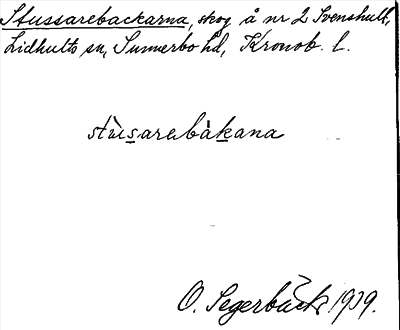 Stussarebackarna, skog å nr 2 Svenshult,
Lidhults sn, Sunnerbo hd, Kronob. l.
stùsarebàkana
O. Segerbäck 1939.